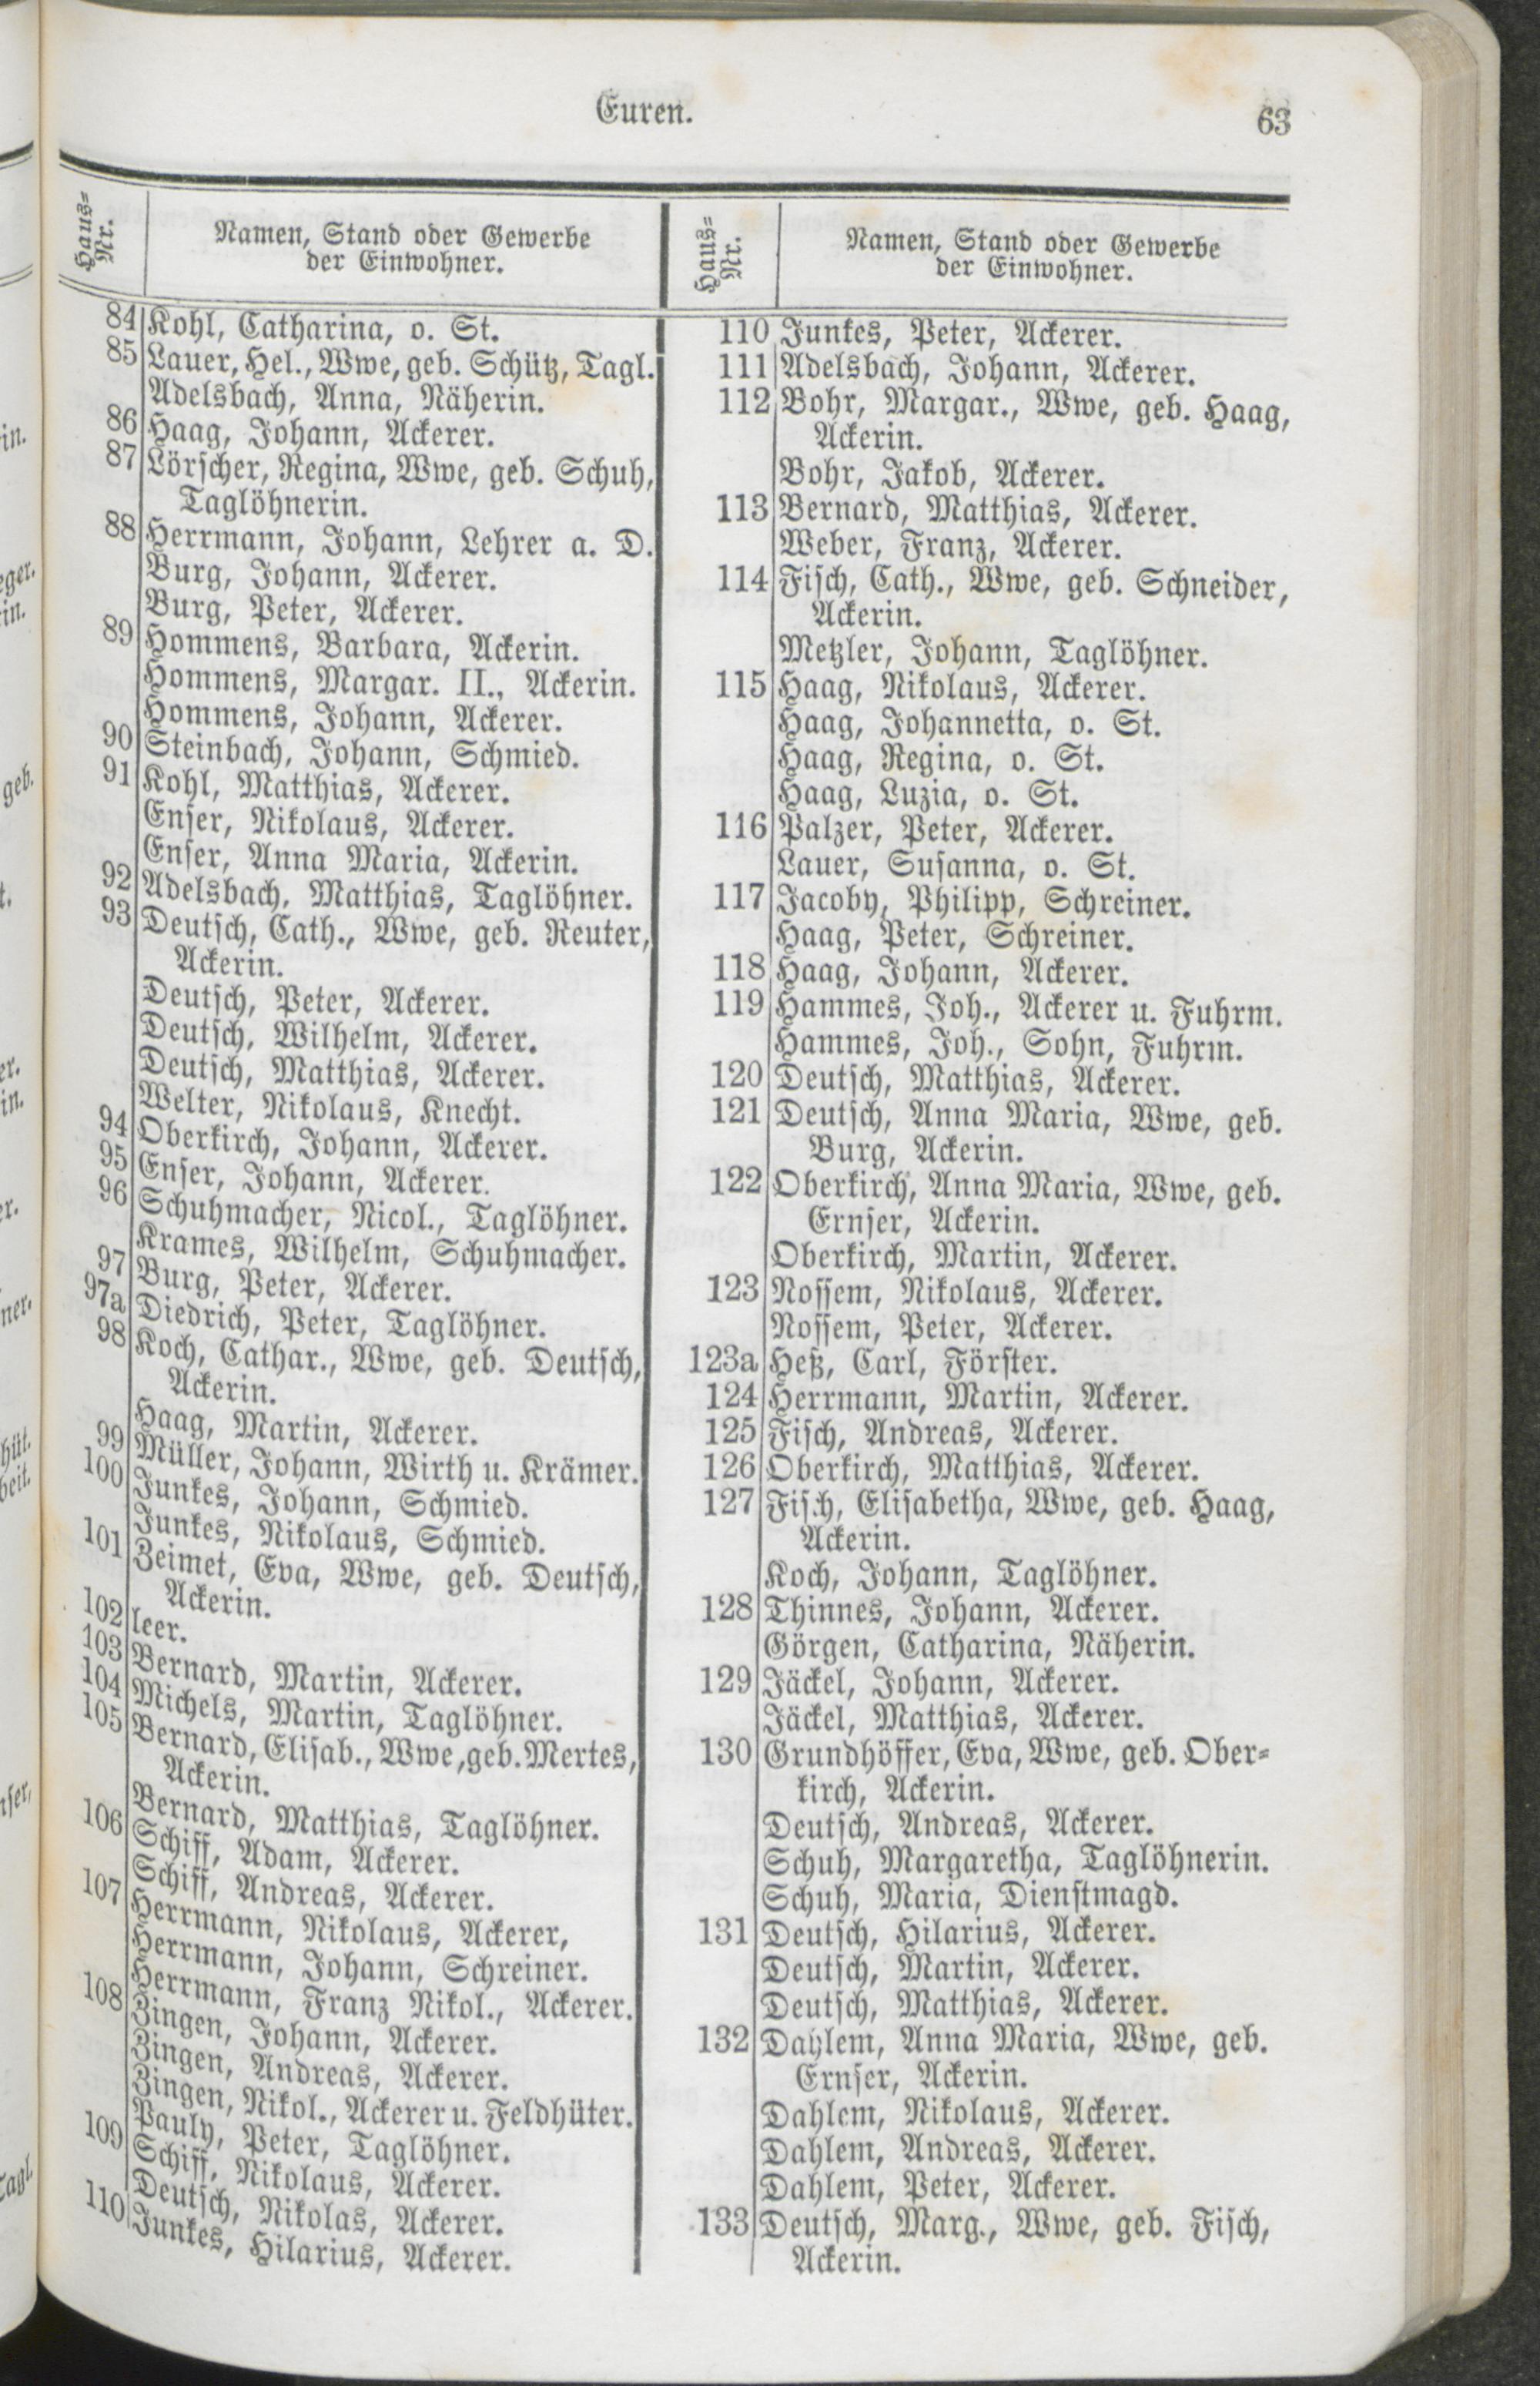 Euren.
63
Haus-
Nr.
Namen, Stand oder Gewerbe
der Einwohner.
84 Kohl, Catharina, o. St.
85 Lauer, Hel., Wwe, geb. Schütz, Tagl.
Adelsbach, Anna, Näherin.
86 Haag, Johann, Ackerer.
87 Lörscher, Regina, Wwe, geb. Schuh,
Taglöhnerin.
88 Herrmann, Johann, Lehrer a. D.
Burg, Johann, Ackerer.
Burg, Peter, Ackerer.
89 Hommens, Barbara, Ackerin.
Hommens, Margar. II., Ackerin.
Hommens, Johann, Ackerer.
90 Steinbach, Johann, Schmied.
91 Kohl, Matthias, Ackerer.
Enser, Nikolaus, Ackerer.
Enser, Anna Maria, Ackerin.
92 Adelsbach, Matthias, Taglöhner.
93 Deutsch, Cath., Wwe, geb. Reuter,
Ackerin.
Deutsch, Peter, Ackerer.
Deutsch, Wilhelm, Ackerer.
Deutsch, Matthias, Ackerer.
Welter, Nikolaus, Knecht.
94 Oberkirch, Johann, Ackerer.
95 Enser, Johann, Ackerer.
96 Schuhmacher, Nicol., Taglöhner.
Krames, Wilhelm, Schuhmacher.
97 Burg, Peter, Ackerer.
97a Diedrich, Peter, Taglöhner.
98 Koch, Cathar., Wwe, geb. Deutsch,
Ackerin.
Haag, Martin, Ackerer.
99 Müller, Johann, Wirth u. Krämer.
100 Junkes, Johann, Schmied.
Junkes, Nikolaus, Schmied.
101 Zeimet, Eva, Wwe, geb. Deutsch,
Ackerin.
102 leer.
103 Bernard, Martin, Ackerer.
104 Michels, Martin, Taglöhner.
105 Bernard, Elisab., Wwe, geb. Mertes,
Ackerin.
Bernard, Matthias, Taglöhner.
106 Schiff, Adam, Ackerer.
Schiff, Andreas, Ackerer.
107 Herrmann, Nikolaus, Ackerer,
Herrmann, Johann, Schreiner.
Herrmann, Franz Nikol., Ackerer.
108 Zingen, Johann, Ackerer.
Zingen, Andreas, Ackerer.
Zingen, Nikol., Ackerer u. Feldhüter.
Pauly, Peter, Taglöhner.
109 Schiff, Nikolaus, Ackerer.
Deutsch, Nikolas, Ackerer.
110 Junkes, Hilarius, Ackerer.
Haus-
Nr.
Namen, Stand oder Gewerbe
der Einwohner.
110 Junkes, Peter, Ackerer.
111 Adelsbach, Johann, Ackerer.
112 Bohr, Margar., Wwe, geb. Haag,
Ackerin.
Bohr, Jakob, Ackerer.
113 Bernard, Matthias, Ackerer.
Weber, Franz, Ackerer.
114 Fisch, Cath., Wwe, geb. Schneider,
Ackerin.
Metzler, Johann, Taglöhner.
115 Haag, Nikolaus, Ackerer.
Haag, Johannetta, o. St.
Haag, Regina, o. St.
Haag, Luzia, o. St.
116 Palzer, Peter, Ackerer.
Lauer, Susanna, o. St.
117 Jacoby, Philipp, Schreiner.
Haag, Peter, Schreiner.
118 Haag, Johann, Ackerer.
119 Hammes, Joh., Ackerer u. Fuhrm.
Hammes, Joh., Sohn, Fuhrm.
120 Deutsch, Matthias, Ackerer.
121 Deutsch, Anna Maria, Wwe, geb.
Burg, Ackerin.
122 Oberkirch, Anna Maria, Wwe, geb.
Ernser, Ackerin.
Oberkirch, Martin, Ackerer.
123 Nossem, Nikolaus, Ackerer.
Nossem, Peter, Ackerer.
123a Heß, Carl, Förster.
124 Herrmann, Martin, Ackerer.
125 Fisch, Andreas, Ackerer.
126 Oberkirch, Matthias, Ackerer.
127 Fisch, Elisabetha, Wwe, geb. Haag,
Ackerin.
Koch, Johann, Taglöhner.
128 Thinnes, Johann, Ackerer.
Görgen, Catharina, Näherin.
129 Jäckel, Johann, Ackerer.
Jäckel, Matthias, Ackerer.
130 Grundhöffer, Eva, Wwe, geb. Ober-
kirch, Ackerin.
Deutsch, Andreas, Ackerer.
Schuh, Margaretha, Taglöhnerin.
Schuh, Maria, Dienstmagd.
131 Deutsch, Hilarius, Ackerer.
Deutsch, Martin, Ackerer.
Deutsch, Matthias, Ackerer.
132 Dahlem, Anna Maria, Wwe, geb.
Ernser, Ackerin.
Dahlem, Nikolaus, Ackerer.
Dahlem, Andreas, Ackerer.
Dahlem, Peter, Ackerer.
133 Deutsch, Marg., Wwe, geb. Fisch,
Ackerin.